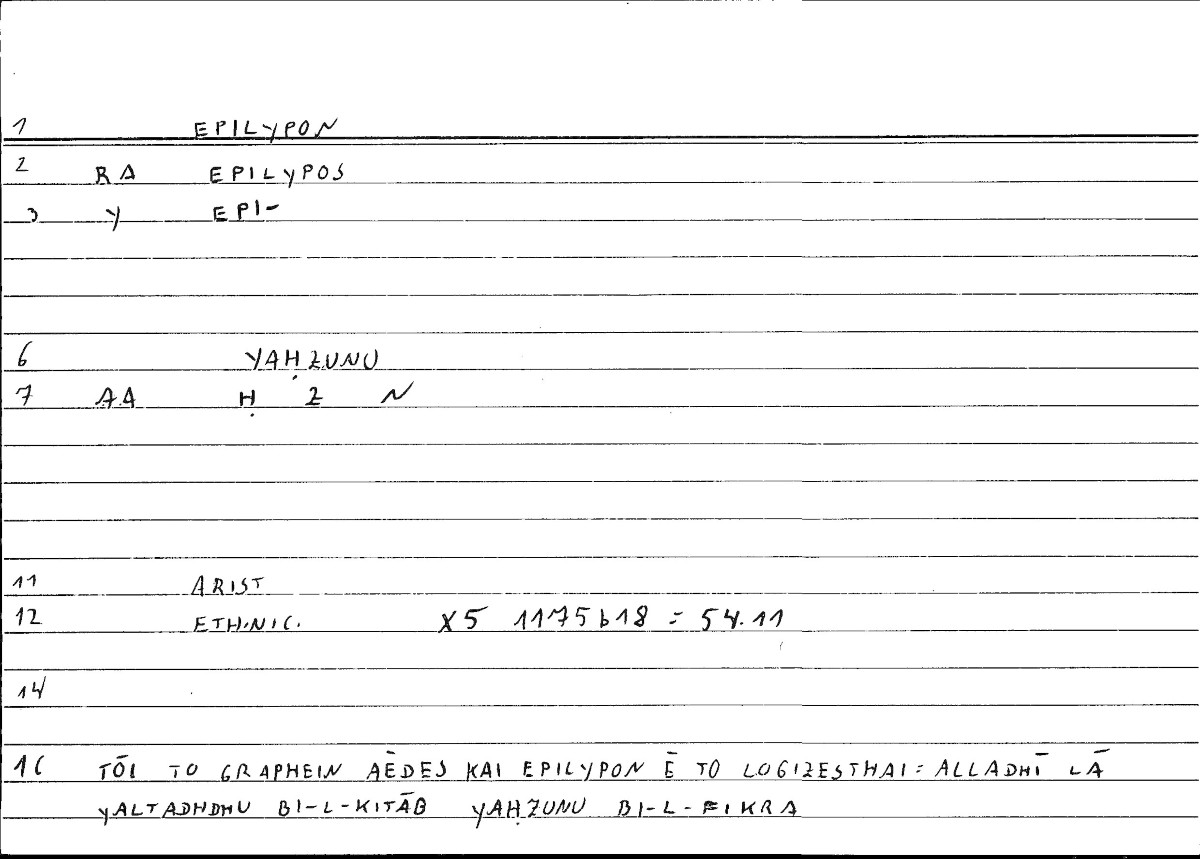 1 EPILYPON
2 RA EPILYPOS
3 Y EPI-
6 YAḤZUNU
7 AA Ḥ Z N
11 ARIST
12 ETH.NIC. X5 1175b18 = 54.11
14
16 TŌI TO GRAPHEIN AĒDES KAI EPILYPON Ē TO LOGIZESTHAI = ALLADHĪ LĀ
YALTADHDHU BI-L-KITĀB YAḤZUNU BI-L-FIKRA